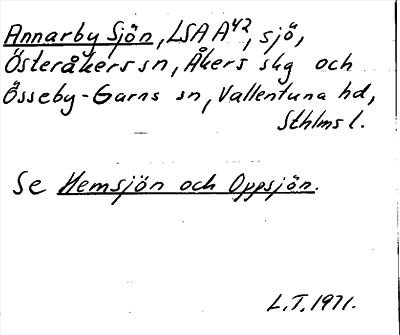 Annarby Sjön, LSA A42, sjö,
Österåkers sn, Åkers skg och
Össeby-Garns sn, Vallentuna hd,
Sthlms l.
Se Hemsjön och Oppsjön.
L.T. 1971.